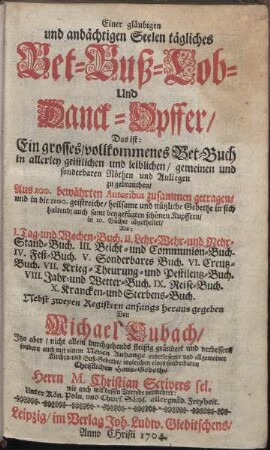 Einer gläubigen
und andächtigen Seelen tägliches
Bet-Buß-Lob-
Und
Danck-Opffer/
Das ist:
Ein grosses/vollkommenes Bet-Buch
in allerley geistlichen und leiblichen/ gemeinen und
sonderbaren Nöthen und Anliegen
zu gebrauchen/
Aus 100. bewährten Autoribus zusammen getragen/
und in die 1100. geistreiche/ heilsame und nützliche Gebethe in sich
haltend; auch samt beygefügten schönen Kupffern
in 10. Bücher abgetheilet/
Als:
I. Tag-und Wochen-Buch. II. Lehr-Wehr-und Nehr-
Stand-Buch. III. Beicht-und Communion-Buch.
IV. Fest-Buch. V. Sonderbares Buch. VI. Creutz-
Buch. VII. Krieg-Theurung-und Pestilentz-Buch.
VIII. Jahr-und Wetter-Buch. IX. Reise-Buch.
X. Krancken-und Sterbens-Buch.
Nebst zweyen Registern anfangs heraus gegeben
Von
Michael Cubach/
Itzo aber/ nicht allein durchgehends fleißig geändert und verbessert
sondern auch mit einem Neuen Anhange
Kirchen-und Buß-Gebethe/
Christlichen Haus-Gebeths/
Herrn M. Christian Scrivers sel.
wie auch mit dessen Vorrede vermehret/
Unter Kön. Poln. und Churf. Sächs. allergnäd. Freyheit.
Leipzig/ im Verlag Joh. Ludw. Gleditschens/
Anno Christi 1704.